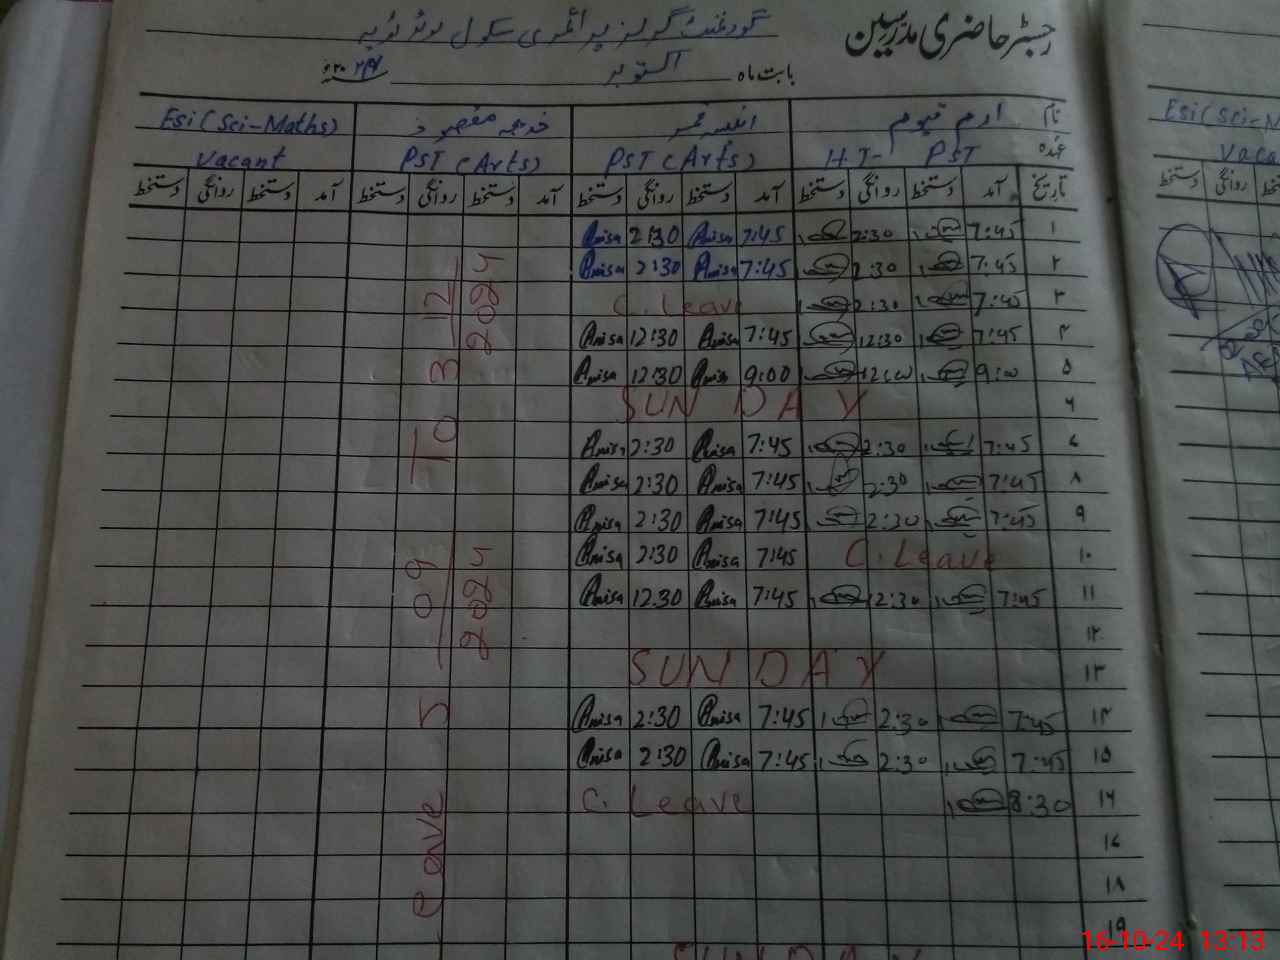 رجسٹر حاضری مدرسین
گورنمنٹ گرلز پرائمری سکول
بابت ماہ اکتوبر
نام ارم قیوم Esi (Sci-Maths)
عہدہ H.T- PST PST (Arts) PST (Arts) Vacant
تاریخ آمد دستخط روانگی دستخط آمد دستخط روانگی دستخط آمد دستخط روانگی دستخط آمد دستخط روانگی دستخط
۱ 7:45 2:30 7:45 Anisa 2:30 Anisa
۲ 7:45 2:30 7:45 Anisa 2:30 Anisa
۳ 7:45 2:30 C. Leave
۴ 7:45 12:30 7:45 Anisa 12:30 Anisa
۵ 9:00 12:00 9:00 Anisa 12:30 Anisa
۶ SUNDAY
۷ 7:45 2:30 7:45 Anisa 2:30 Anisa
۸ 7:45 2:30 7:45 Anisa 2:30 Anisa
۹ 7:45 2:30 7:45 Anisa 2:30 Anisa
۱۰ C. Leave 7:45 Anisa 2:30 Anisa
۱۱ 7:45 12:30 7:45 Anisa 12.30 Anisa
۱۲
۱۳ SUNDAY
۱۴ 7:45 2:30 7:45 Anisa 2:30 Anisa
۱۵ 7:45 2:30 7:45 Anisa 2:30 Anisa
۱۶ 8:30 C. Leave
۱۷
۱۸
۱۹
SUNDAY
5 09 2024 To 3 12 2024
Esi (Sci-M
Vaca
دستخط روانگی
16-10-24 13:13